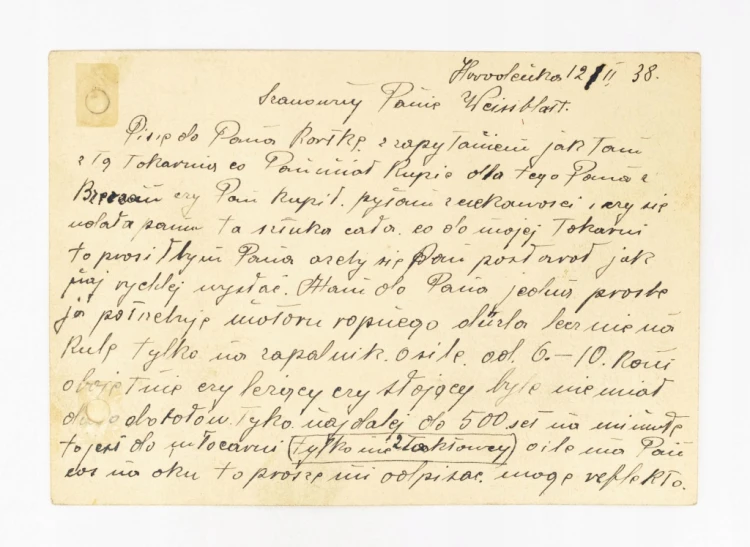 Horodenka 12/II 38.
Szanowny Panie Weissblatt.
Pisię do Pana Kortkę z zapytaniem jak tam
z tą tokarnia co Pan miał kupić dla tego Pana z
Brzeżan czy Pan kupił. pytam z ciekawości, czy się
udała panu ta sztuka cała. co do mojej tokarni
to prosił bym Pana ażeby się Pan postarał jak
naj rychlej wysłać. Mam do Pana jedną proźbę
ja potrzebuję motoru ropnego dizla lecz nie na
kulę tylko na zapalnik. o sile. od. 6.–10. Koni
obojętnie czy leżący czy stojący byle nie miał
dużo obrotów. tylko najdalej do 500 set na minutę
to jest do młocarni (tylko nie 2 taktowey) o ile ma Pan
cos na oku to proszę mi odpisac. mogę reflekto.